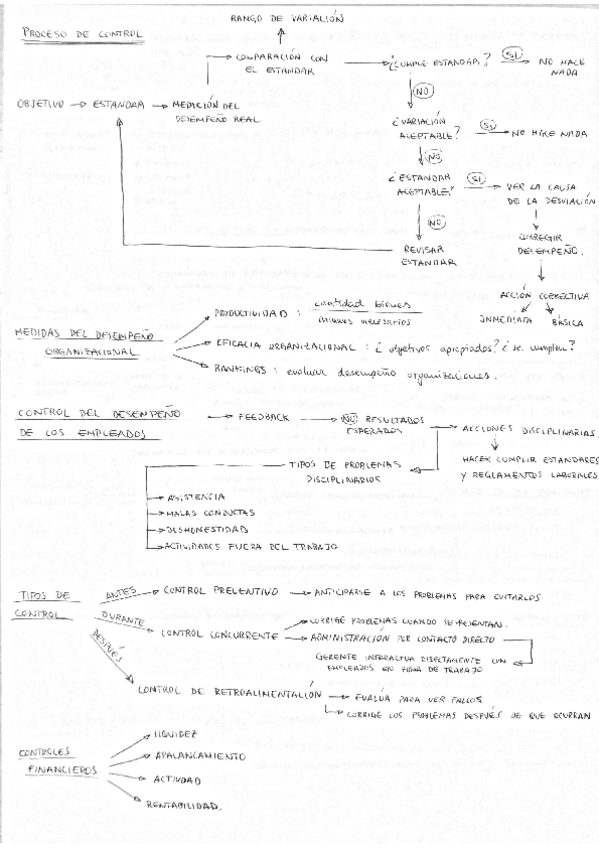 RANGO DE VARIACIÓN
PROCESO DE CONTROL
COMPARACIÓN CON
EL ESTANDAR
¿CUMPLE ESTANDAR?
SI
NO HACE
NADA
OBJETIVO → ESTANDAR → MEDICIÓN DEL
DESEMPEÑO REAL
NO
¿VARIACIÓN
ACEPTABLE?
SI
NO HACE NADA
NO
¿ESTANDAR
ACEPTABLE?
SI
VER LA CAUSA
DE LA DESVIACIÓN
NO
REVISAR
ESTANDAR
CORREGIR
DESEMPEÑO.
ACCIÓN CORRECTIVA
INMEDIATA
BÁSICA
MEDIDAS DEL DESEMPEÑO
ORGANIZACIONAL
PRODUCTIVIDAD : cantidad bienes
insumos necesarios
EFICACIA ORGANIZACIONAL : ¿objetivos apropiados? ¿se cumplen?
RANKINGS : evaluar desempeño organizaciones.
CONTROL DEL DESEMPEÑO
DE LOS EMPLEADOS
FEEDBACK
NO RESULTADOS
ESPERADOS
ACCIONES DISCIPLINARIAS
HACER CUMPLIR ESTANDARES
Y REGLAMENTOS LABORALES
TIPOS DE PROBLEMAS
DISCIPLINARIOS
ASISTENCIA
MALAS CONDUCTAS
DESHONESTIDAD
ACTIVIDADES FUERA DEL TRABAJO
TIPOS DE
CONTROL
ANTES
CONTROL PREVENTIVO
ANTICIPARSE A LOS PROBLEMAS PARA EVITARLOS
DURANTE
CONTROL CONCURRENTE
CORRIGE PROBLEMAS CUANDO SE PRESENTAN.
ADMINISTRACIÓN POR CONTACTO DIRECTO
GERENTE INTERACTUA DIRECTAMENTE CON
EMPLEADOS EN ZONA DE TRABAJO
DESPUÉS
CONTROL DE RETROALIMENTACIÓN
EVALÚA PARA VER FALLOS
CORRIGE LOS PROBLEMAS DESPUÉS DE QUE OCURRAN
CONTROLES
FINANCIEROS
LIQUIDEZ
APALANCAMIENTO
ACTIVIDAD
RENTABILIDAD.